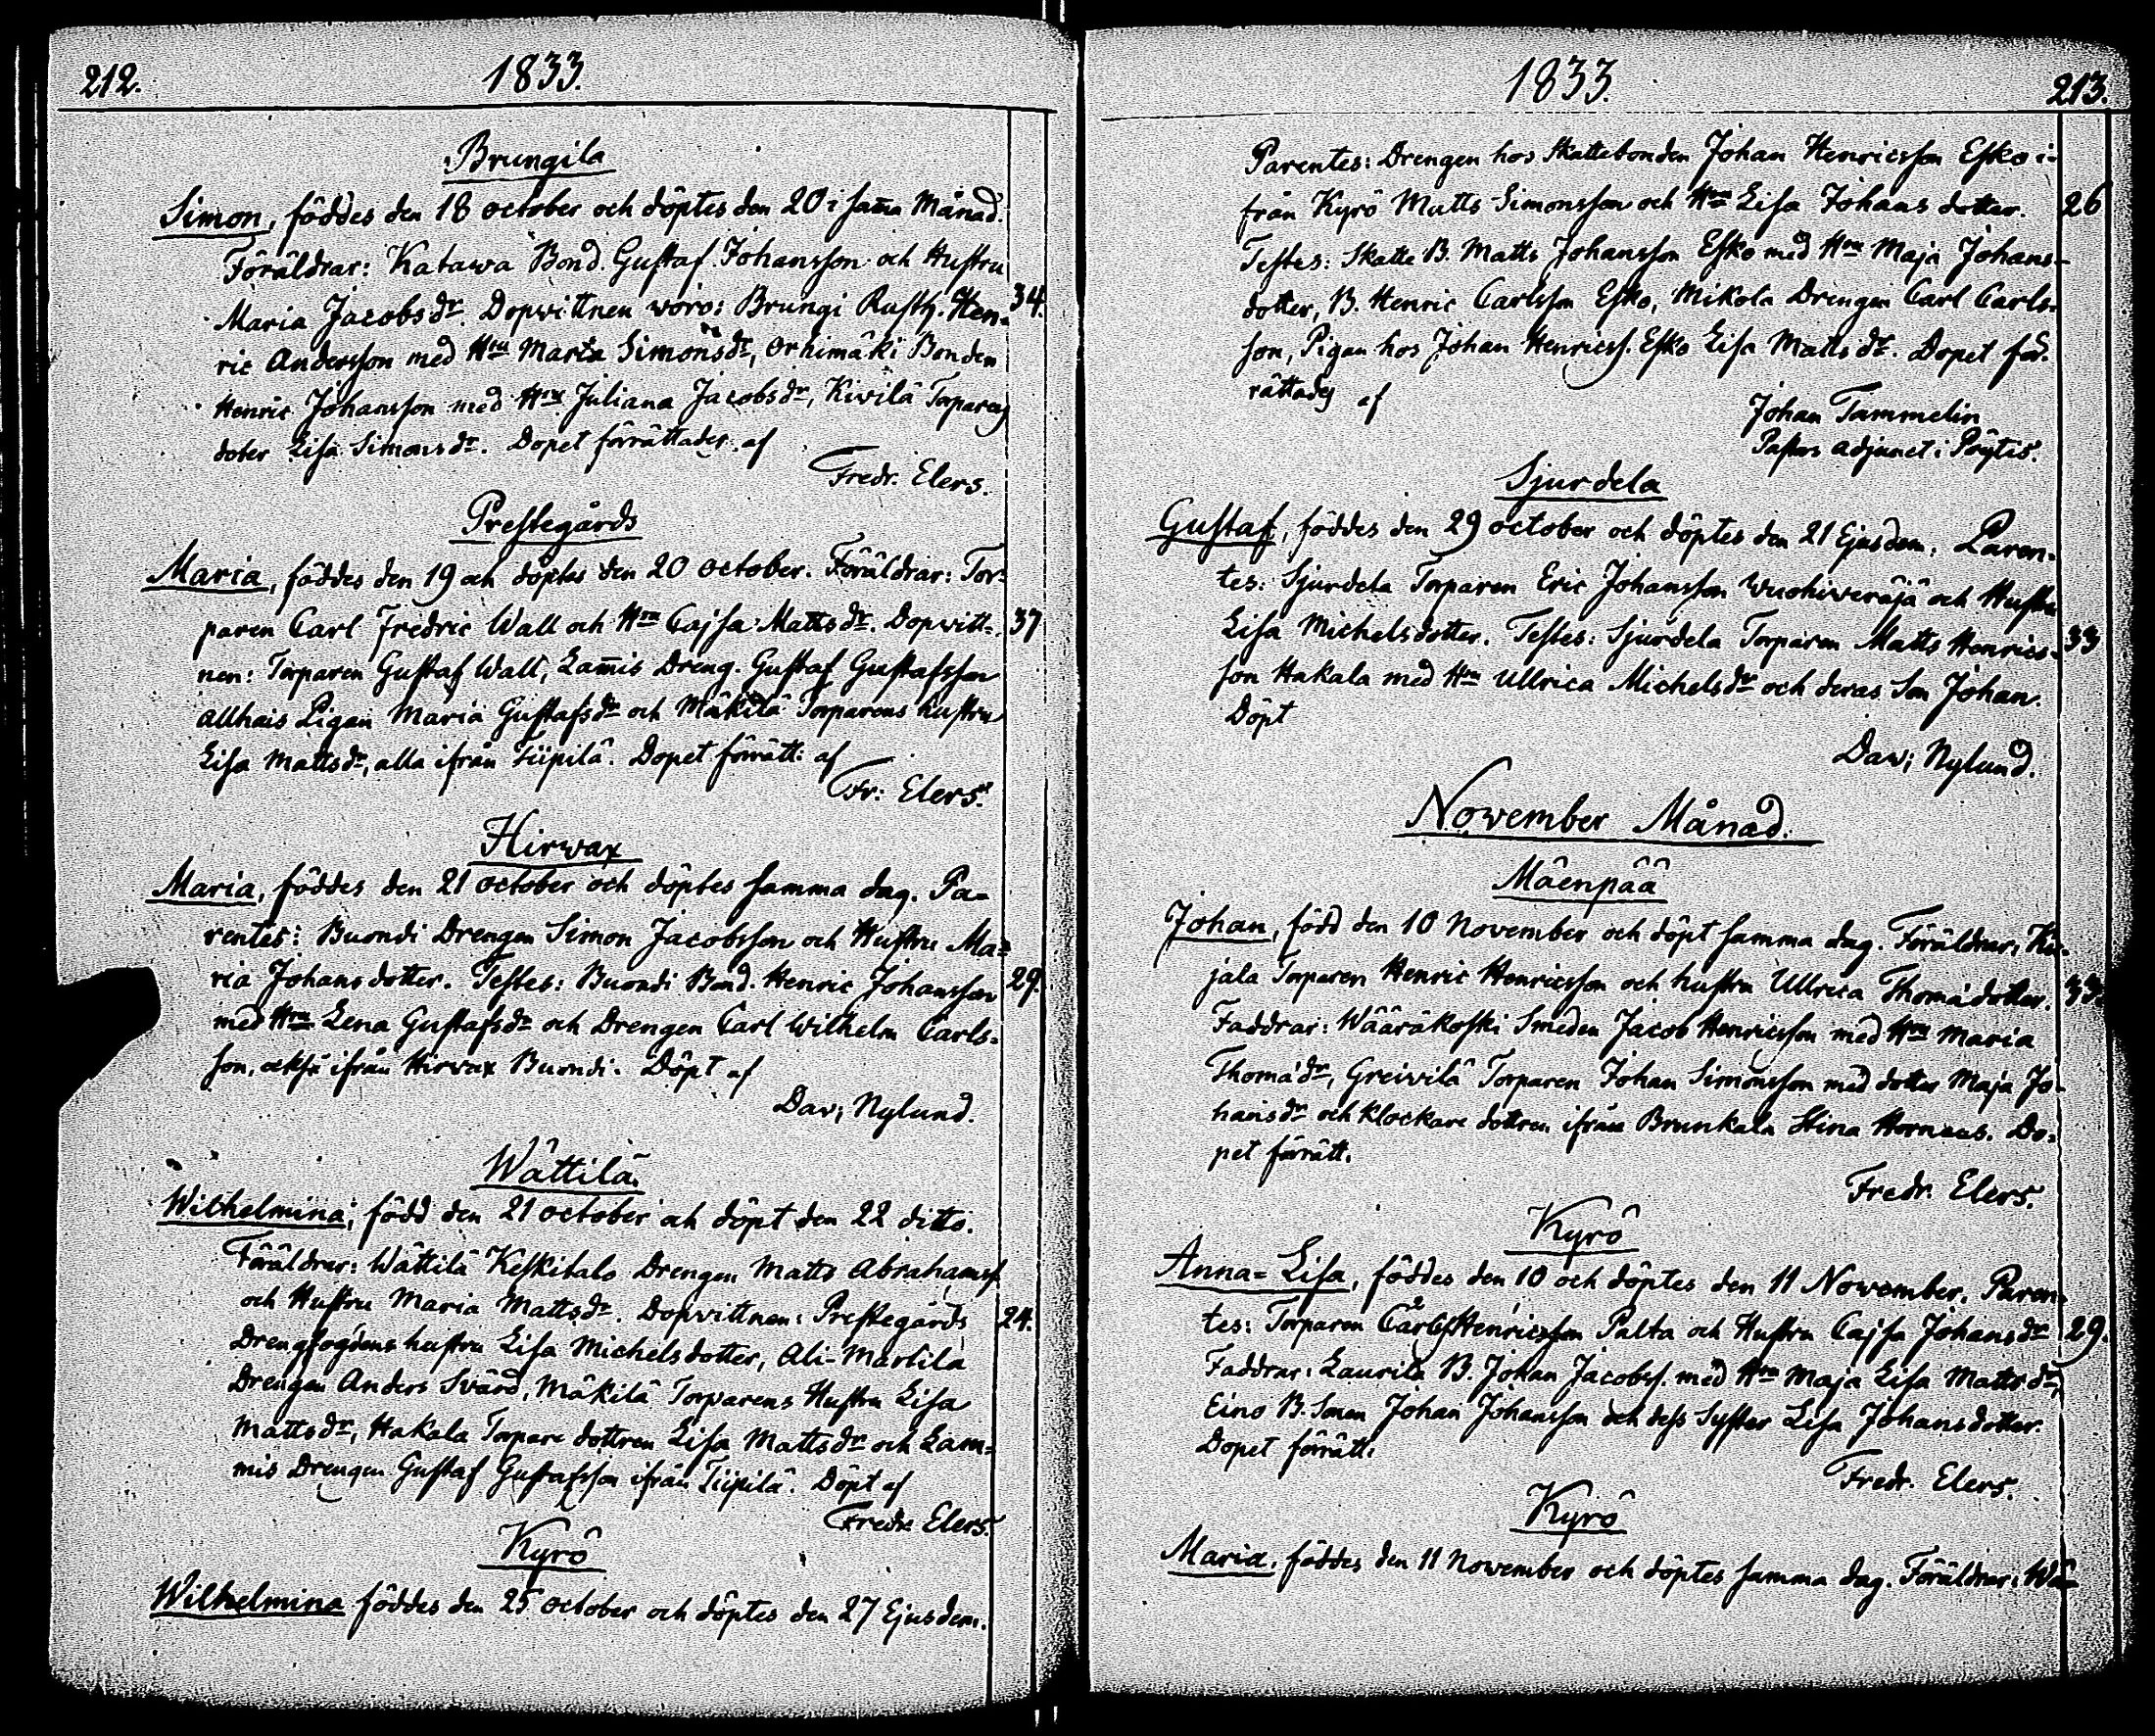 212.
1833.
Brungila
Simon, föddes den 18 october och döptes den 20 i sam̄a Månad.
Föräldrar: Katawa Bond. Gustaf Johansson och Hustru
Maria Jacobs dr. Dopwittnen woro: Brungi Rusth. Hen- 34.
ric Andersson med Hru Maria Simons dr, Orhimäki Bonden
Henric Johansson med Hru Juliana Jacobs dr, Kiwilä Torparens
doter Lisa Simons dr. Dopet förrättades af
Fredr. Elers.
Prestegårds
Maria, föddes den 19 och döptes den 20 October. Föräldrar: Tor-
paren Carl Fredric Wall och Hru Cajsa Matts dr. Dopwitt- 37
nen: Torparen Gustaf Wall, Lam̄is Dreng. Gustaf Gustafsson
Allhais Pigan Maria Gustafs dr och Mäkilä Torparens hustru
Lisa Matts dr, alla ifrån Tiipilä. Dopet förrätt: af
Fr: Elers.
Hirwax
Maria, föddes den 21 october och döptes samma dag. Pa-
rentes: Buondi Drengen Simon Jacobsson och Hustru Ma-
ria Johans dotter. Testes: Buondi Bond. Henric Johansson 29.
med Hru Lena Gustafs dr och Drengen Carl Wilhelm Carls-
son, också ifrån Hirwax Buondi. Döpt af
Dav; Nylund.
Wättilä.
Wilhelmina, född den 21 october och döpt den 22 ditto.
Föräldrar: Wättilä Keskitalo Drengen Matts Abrahamss.
och Hustru Maria Matts dr. Dopvittnen: Prestegårds 24.
Drengfogdens hustru Lisa Michels dotter, Ali-Martila
Drengen Anders Svärd, Mäkilä Torparens Hustru Lisa
Matts dr, Hakala Torpare dottren Lisa Matts dr och Lam-
mis Drengen Gustaf Gustafsson ifrån Tiipilä. Döpt af
Fredr. Elers.
Kyrö
Wilhelmina föddes den 25 october och döptes den 27 Ejusdem.
1833.
213.
Parentes: Drengen hos Skattebonden Johan Henricsson Esko i-
från Kyrö Matts Simonsson och Hru Lisa Johans dotter. 26
Testes: Skatte B. Matts Johansson Esko med Hru Maja Johans-
dotter, B. Henric Carlsson Esko, Mikola Drengen Carl Carls-
son, Pigan hos Johan Henricss. Esko Lisa Matts dr. Dopet för-
rättades af
Johan Tammelin
Pastors adjunct i Pöytis.
Sjurdela
Gustaf, föddes den 29 october och döptes den 21 Ejusdem. Paren-
tes: Sjurdela Torparen Eric Johansson Wuohiweräjä och Hustru
Lisa Michels dotter. Testes: Sjurdela Torparen Matts Henrics- 33
son Hakala med Hru Ullrica Michels dr och deras Son Johan.
Döpt
Dav; Nylund.
November Månad.
Mäenpää
Johan, född den 10 November och döpt samma dag. Föräldrar: Ka-
jala Torparen Henric Henricsson och hustru Ullrica Thomædotter. 33.
Faddrar: Wääräkoski Smeden Jacob Henricsson med Hru Maria
Thomæ dr, Greivilä Torparen Johan Simonsson med dotter Maja Jo-
hans dr och Klockare dottren ifrån Brunkala Stina Hornæus. Do-
pet förrätt.
Fredr. Elers.
Kyrö
Anna-Lisa, föddes den 10 och döptes den 11 November. Paren-
tes: Torparen Carl Henricsson Palta och Hustru Cajsa Johans dr 29.
Faddrar: Laurila B. Johan Jacobss. med Hru Maja Lisa Matts dr,
Eino B. Sonen Johan Johansson och dess Syster Lisa Johans dotter.
Dopet förrätt:
Fredr. Elers.
Kyrö
Maria, föddes den 11 November och döptes samma dag. Föräldrar: Wä-